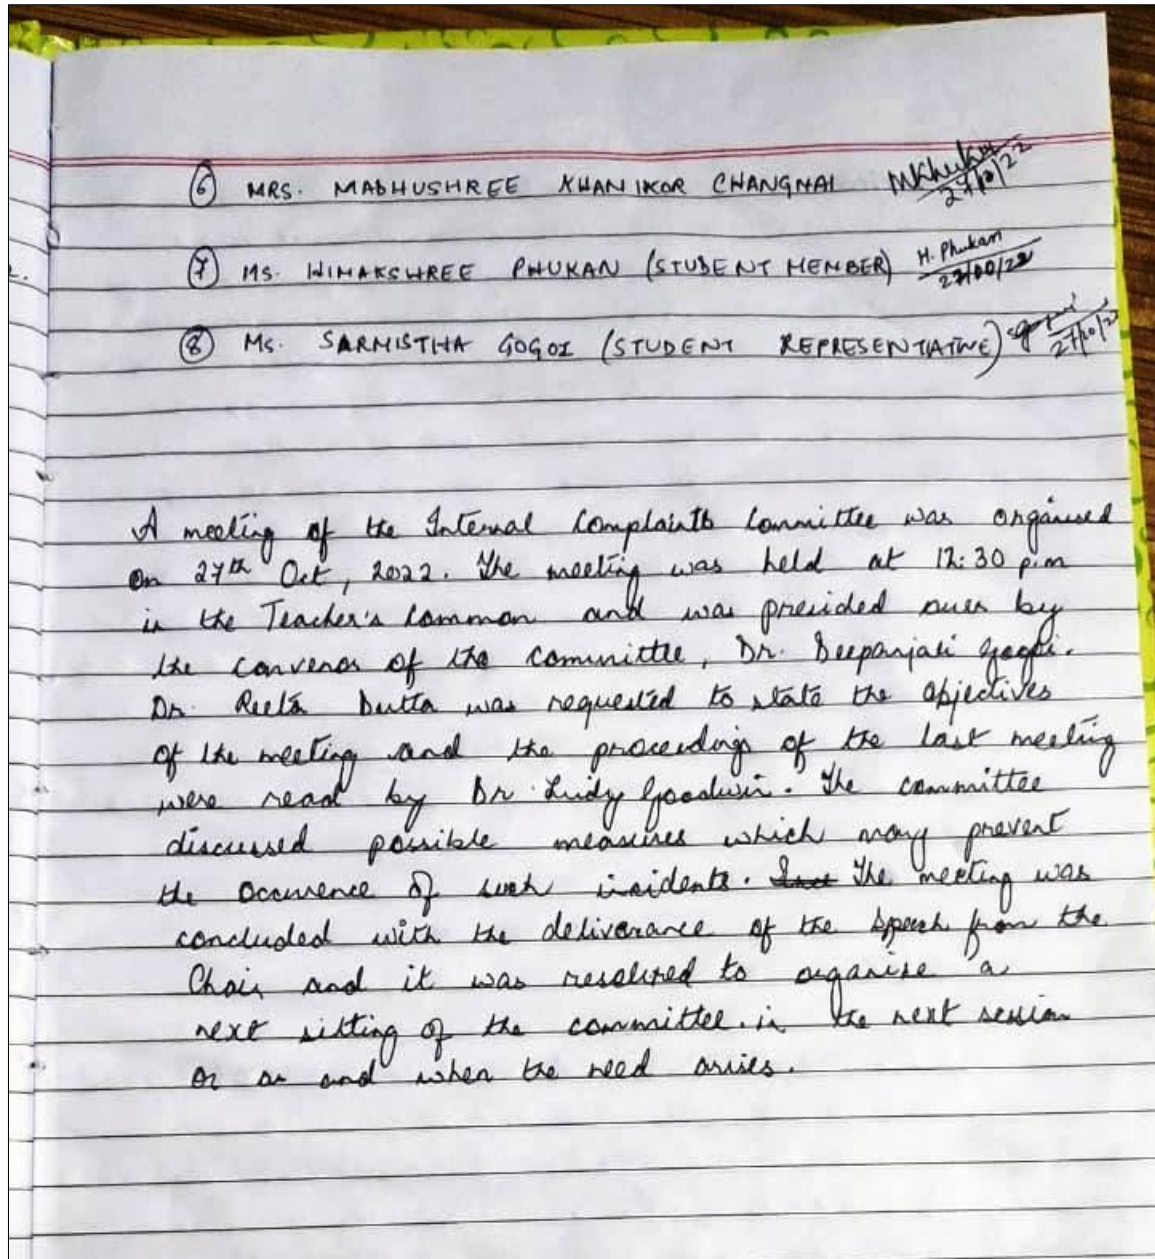 ⑥ MRS. MADHUSHREE KHANIKOR CHANGMAI MKhanikor 27/10/22
⑦ MS. HIMAKSHREE PHUKAN (STUDENT MEMBER) H. Phukan 27/10/22
⑧ Ms. SARMISTHA GOGOI (STUDENT REPRESENTATIVE) 27/10/22
A meeting of the Internal Complaints Committee was organised
on 27th Oct, 2022. The meeting was held at 12:30 p.m
in the Teacher's Common and was presided over by
the convenor of the committee, Dr. Deepanjali Gogoi.
Dr. Reeta Dutta was requested to state the objectives
of the meeting and the proceedings of the last meeting
were read by Dr. Luidy Goodwin. The committee
discussed possible measures which may prevent
the occurence of such incidents. The meeting was
concluded with the deliverance of the speech from the
Chair and it was resolved to organise a
next sitting of the committee in the next session
or as and when the need arises.